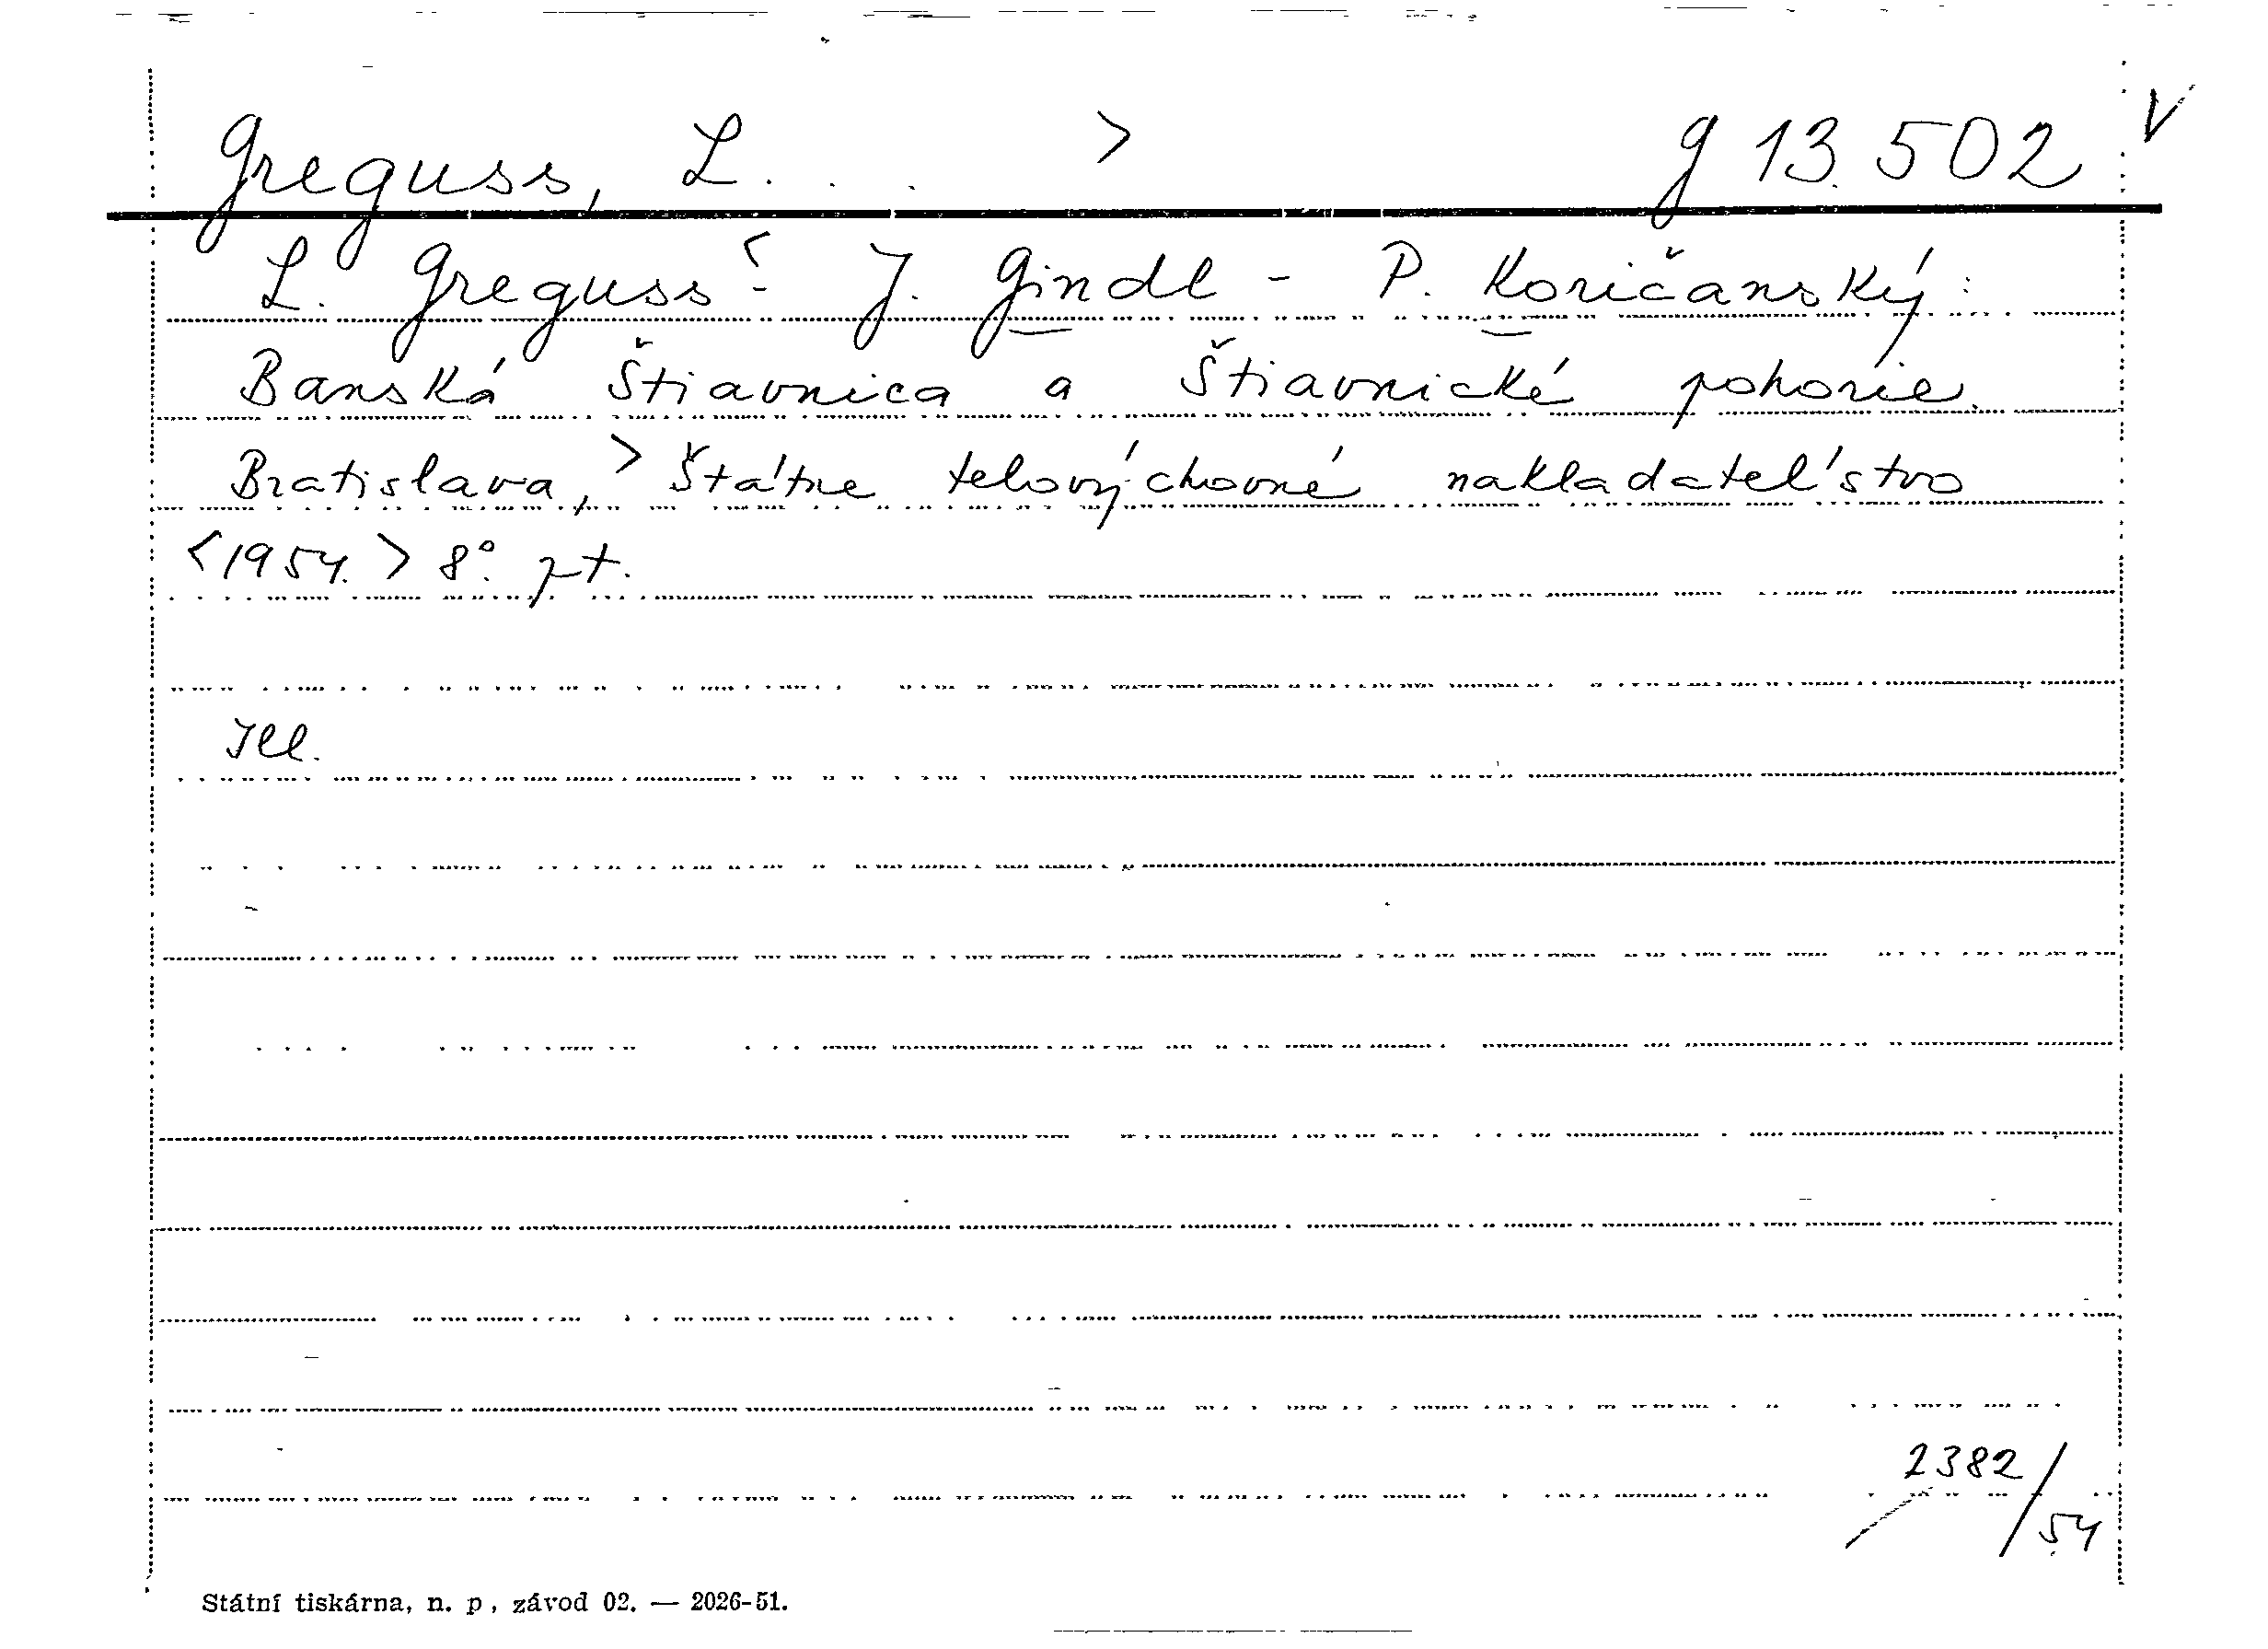 Greguss, L. . . > g 13.502 V
L. Greguss < - J. Gindl - P. Koričanský:
Banská Štiavnica a Štiavnické pohorie.
Bratislava, > Štátne telovýchovné nakladateľstvo
<1954.> 8°. pt.
Ill.
2382/54
Státní tiskárna, n. p., závod 02. — 2026-51.